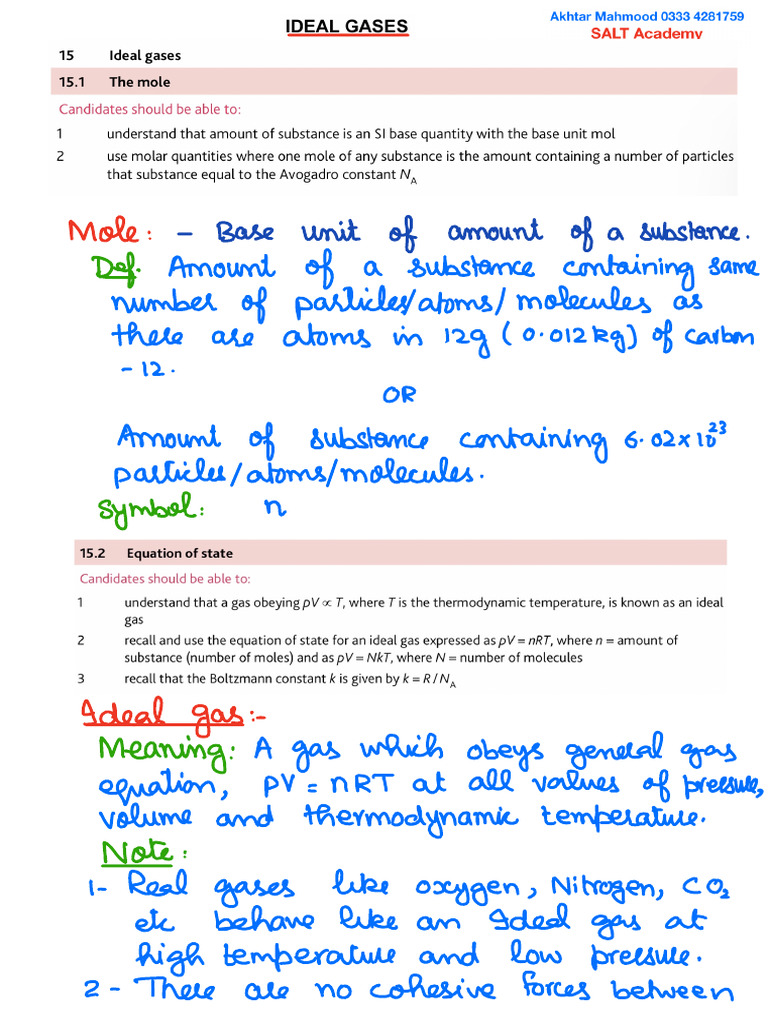 IDEAL GASES
Akhtar Mahmood 0333 4281759
SALT Academy
15 Ideal gases
15.1 The mole
Candidates should be able to:
1 understand that amount of substance is an SI base quantity with the base unit mol
2 use molar quantities where one mole of any substance is the amount containing a number of particles
that substance equal to the Avogadro constant N_A
Mole: - Base unit of amount of a substance.
Def. Amount of a substance containing same
number of particles/atoms/molecules as
there are atoms in 12g (0.012kg) of carbon
-12.
OR
Amount of substance containing 6.02×10²³
particles/atoms/molecules.
Symbol: n
15.2 Equation of state
Candidates should be able to:
1 understand that a gas obeying pV ∝ T, where T is the thermodynamic temperature, is known as an ideal
gas
2 recall and use the equation of state for an ideal gas expressed as pV = nRT, where n = amount of
substance (number of moles) and as pV = NkT, where N = number of molecules
3 recall that the Boltzmann constant k is given by k = R / N_A
Ideal gas:-
Meaning: A gas which obeys general gas
equation, PV = nRT at all values of pressure,
volume and thermodynamic temperature.
Note:
1- Real gases like oxygen, Nitrogen, CO₂
etc behave like an Ideal gas at
high temperature and low pressure.
2 - There are no cohesive forces between